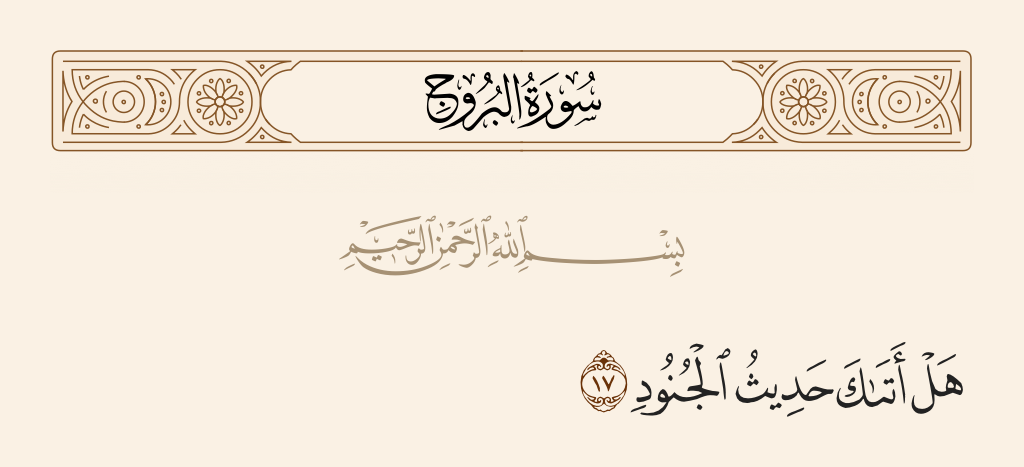 سُورَةُ البُرُوجِ
بِسْمِ ٱللَّهِ ٱلرَّحْمَٰنِ ٱلرَّحِيمِ
هَلْ أَتَىٰكَ حَدِيثُ ٱلْجُنُودِ ١٧